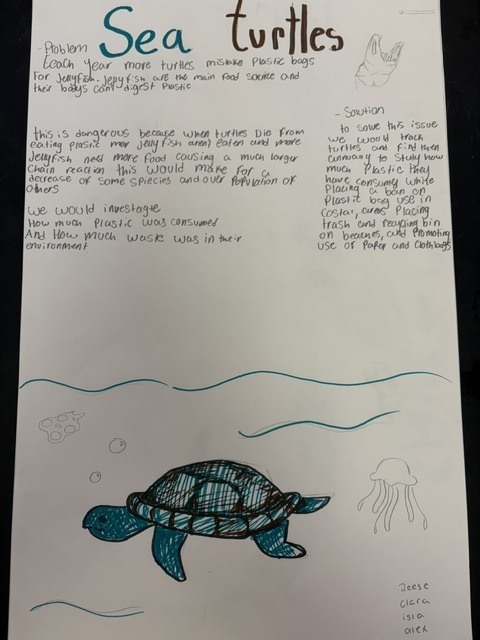 Sea turtles
- Problem
Each year more turtles mistake plastic bags
For Jellyfish. Jellyfish are the main food source and
their bodys can't digest Plastic
this is dangerous because when turtles Die from
eating plastic mor Jelly fish arent eaten and more
Jellyfish need more food causing a much larger
Chain reaction this would make for a
decrease of some species and over Population of
others
We would investagte
How much plastic was consumed
And How much waste was in their
environment
- Solution
to solve this issue
we would track
turtles and find them
annualy to study how
much Plastic they
have consumed while
Placing a ban on
Plastic bag use in
Costal, areas Placing
trash and recycling bin
on beaches, and Promoting
use of Paper and Cloth bags
Reese
Clara
isla
alex